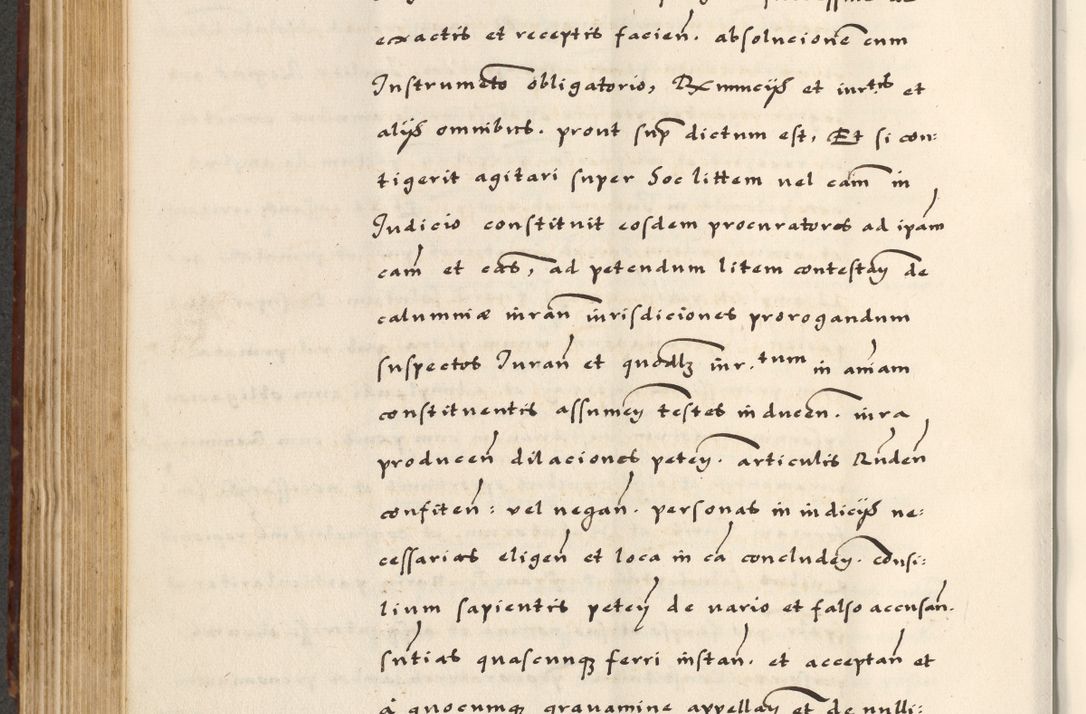 exactis et receptis facien̄. absolucionē cum
Instrumēto obligatorio, Rx̄nunciꝭ et iur.tis et
alijs omnibus. prout sup̄ dictum est, Et si con:
tigerit agitari super hoc littem vel cām in
Judicio constituit eosdem procuratores ad ip̄am
cām et cās, ad petendum litem contestaꝶ de
calumniæ iuran̄ iurisdiciones prorogandum
suspectos Juran̄ et quodlꝫ iur.tum in aīam
constituentis assumeꝶ testes inducen̄. iura
producen̄ dilaciones peteꝶ. articulis Rn̄den̄
confiten̄: vel negan̄. personas in indicijs ne:
cessarias eligen̄ et loca in cā concludeꝶ. Consi:
lium sapientis peteꝶ de vario et falso accusan̄.
sn̄tias quascunqꝫ ferri instan̄. et acceptan̄ et
à quocumqꝫ gravamine appellaꝶ et de nulli: